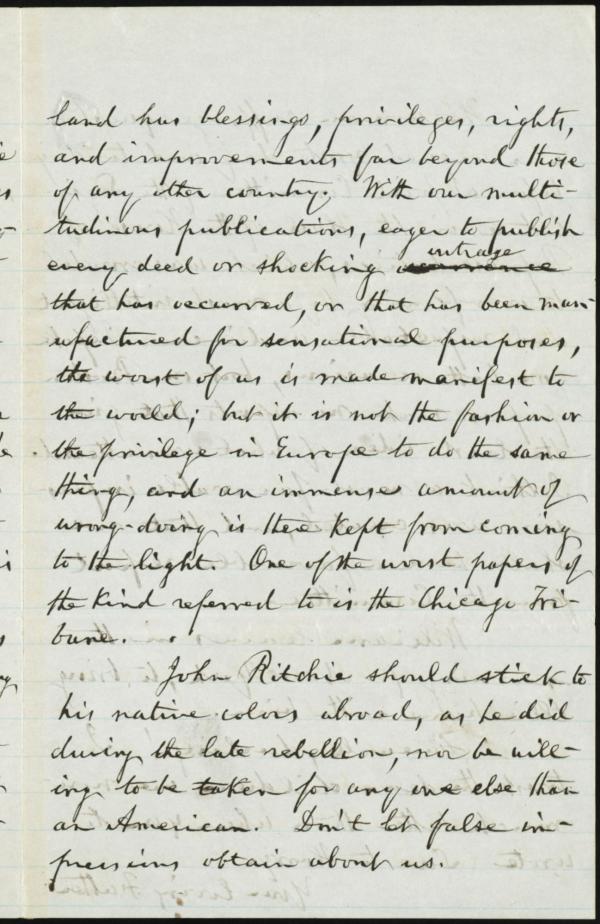 land has blessings, privileges, rights,
and improvements far beyond those
of any other country. With our multi-
tudinous publications, eager to publish
every deed or shocking outrage
that has occurred, or that has been man-
ufactured for sensational purposes,
the worst of us is made manifest to
the world; but it is not the fashion or
the privilege in Europe to do the same
thing, and an immense amount of
wrong-doing is there kept from coming
to the light. One of the worst papers of
the kind referred to is the Chicago Tri-
bune.
John Ritchie should stick to
his native colors abroad, as he did
during the late rebellion, nor be will-
ing to be taken for any one else than
an American. Don't let false im-
pressions obtain about us.